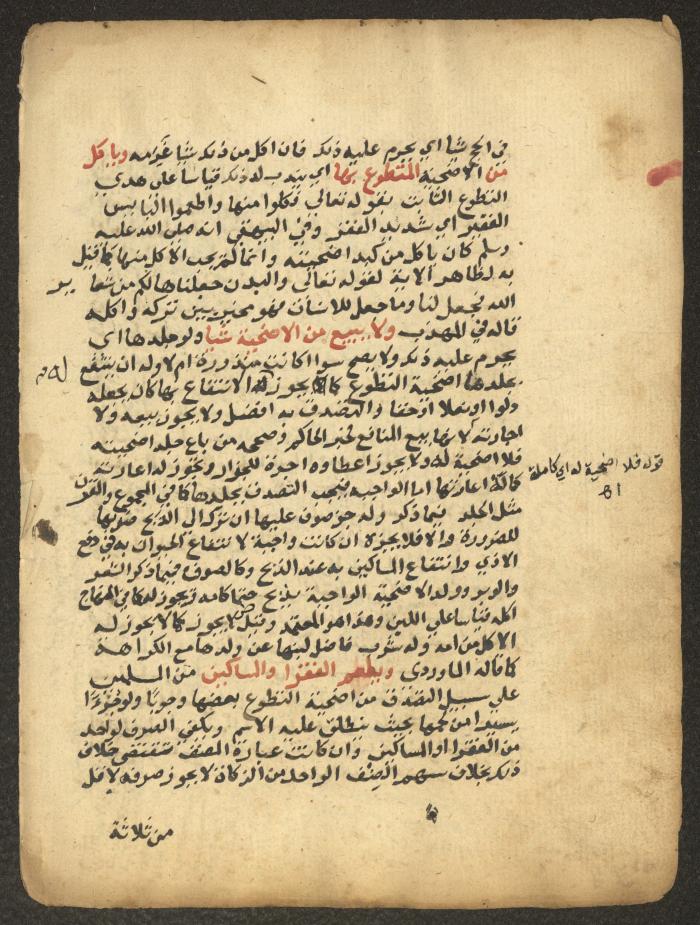 في الحج شيا اي يحرم عليه ذلك فان اكل من ذلك شيا غرمه وياكل
من الاضحية المتطوع بها اي يندب له ذلك قياسا على هدي
التطوع الثابت بقوله تعالى فكلوا منها واطعموا البايس
الفقير اي شديد الفقر وفي البيهقي انه صلى الله عليه
وسلم كان ياكل من كبد اضحيته وانما لم يجب الاكل منها كما قيل
به لظاهر الاية لقوله تعالى والبدن جعلناها لكم من شعا ير
الله فجعل لنا وما جعل للانسان فهو مخير بين تركه واكله
قاله في المهذب ولا يبيع من الاضحية شيا ولو جلدها اي
يحرم عليه ذلك ولا يصح سوا اكانت منذورة ام لا وله ان ينتفع
بجلدها اضحية التطوع كما يجوز له الانتفاع بها كان يجعله
دلوا او نعلا او خفا والتصدق به افضل ولا يجوز بيعه ولا
اجارته لانها بيع المنافع لخبر الحاكم وصححه من باع جلد اضحيته
فلا اضحية له ولا يجوز اعطاوه اجرة للجزار وتجوز له اعارته
كما له اعارتها اما الواجبة فيجب التصدق بجلدها كما في المجموع والقرن
مثل الجلد فيما ذكر وله جز صوف عليها ان ترك الى الذبح ضر بها
للضرورة والا فلا يجزه ان كانت واجبة لانتفاع الحيوان به في دفع
الاذى وانتفاع المساكين به عند الذبح وكالصوف فيما ذكر الشعر
والوبر وولد الاضحية الواجبة يذبح حتما كامه ويجوز له كما في المنهاج
اكله قياسا على اللبن وهذا هو المعتمد وقيل لا يجوز كما لا يجوز له
الاكل من امه وله شرب فاضل لبنها عن ولدها مع الكراهة
كما قاله الماوردي ويطعم الفقرا والمساكين من المسلمين
على سبيل التصدق من اضحية التطوع بعضها وجوبا ولو جزءا
يسيرا من لحمها بحيث ينطلق عليه الاسم ويكفي الصرف لواحد
من الفقرا او المساكين وان كانت عبارة المصنف تقتضي خلاف
ذلك بخلاف سهم الصنف الواحد من الزكاة لا يجوز صرفه لاقل
من ثلاثة
قوله فلا اضحية له اي كاملة
اه